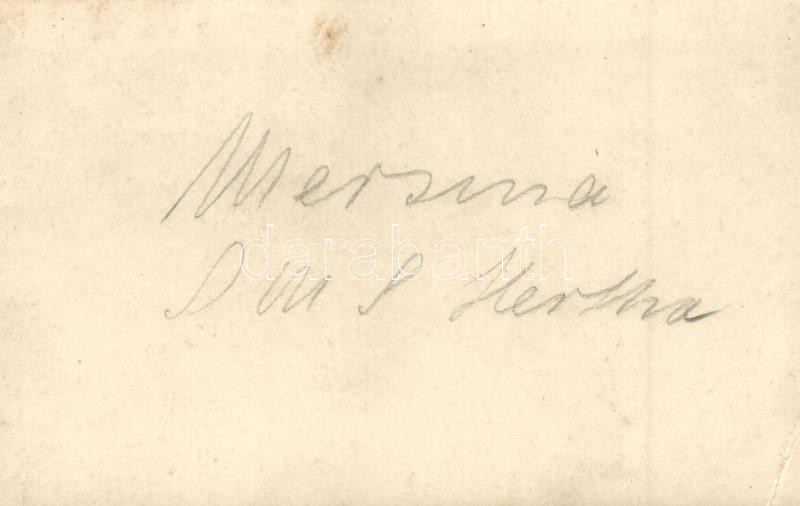 Mersina
S M S Hertha
darabanth